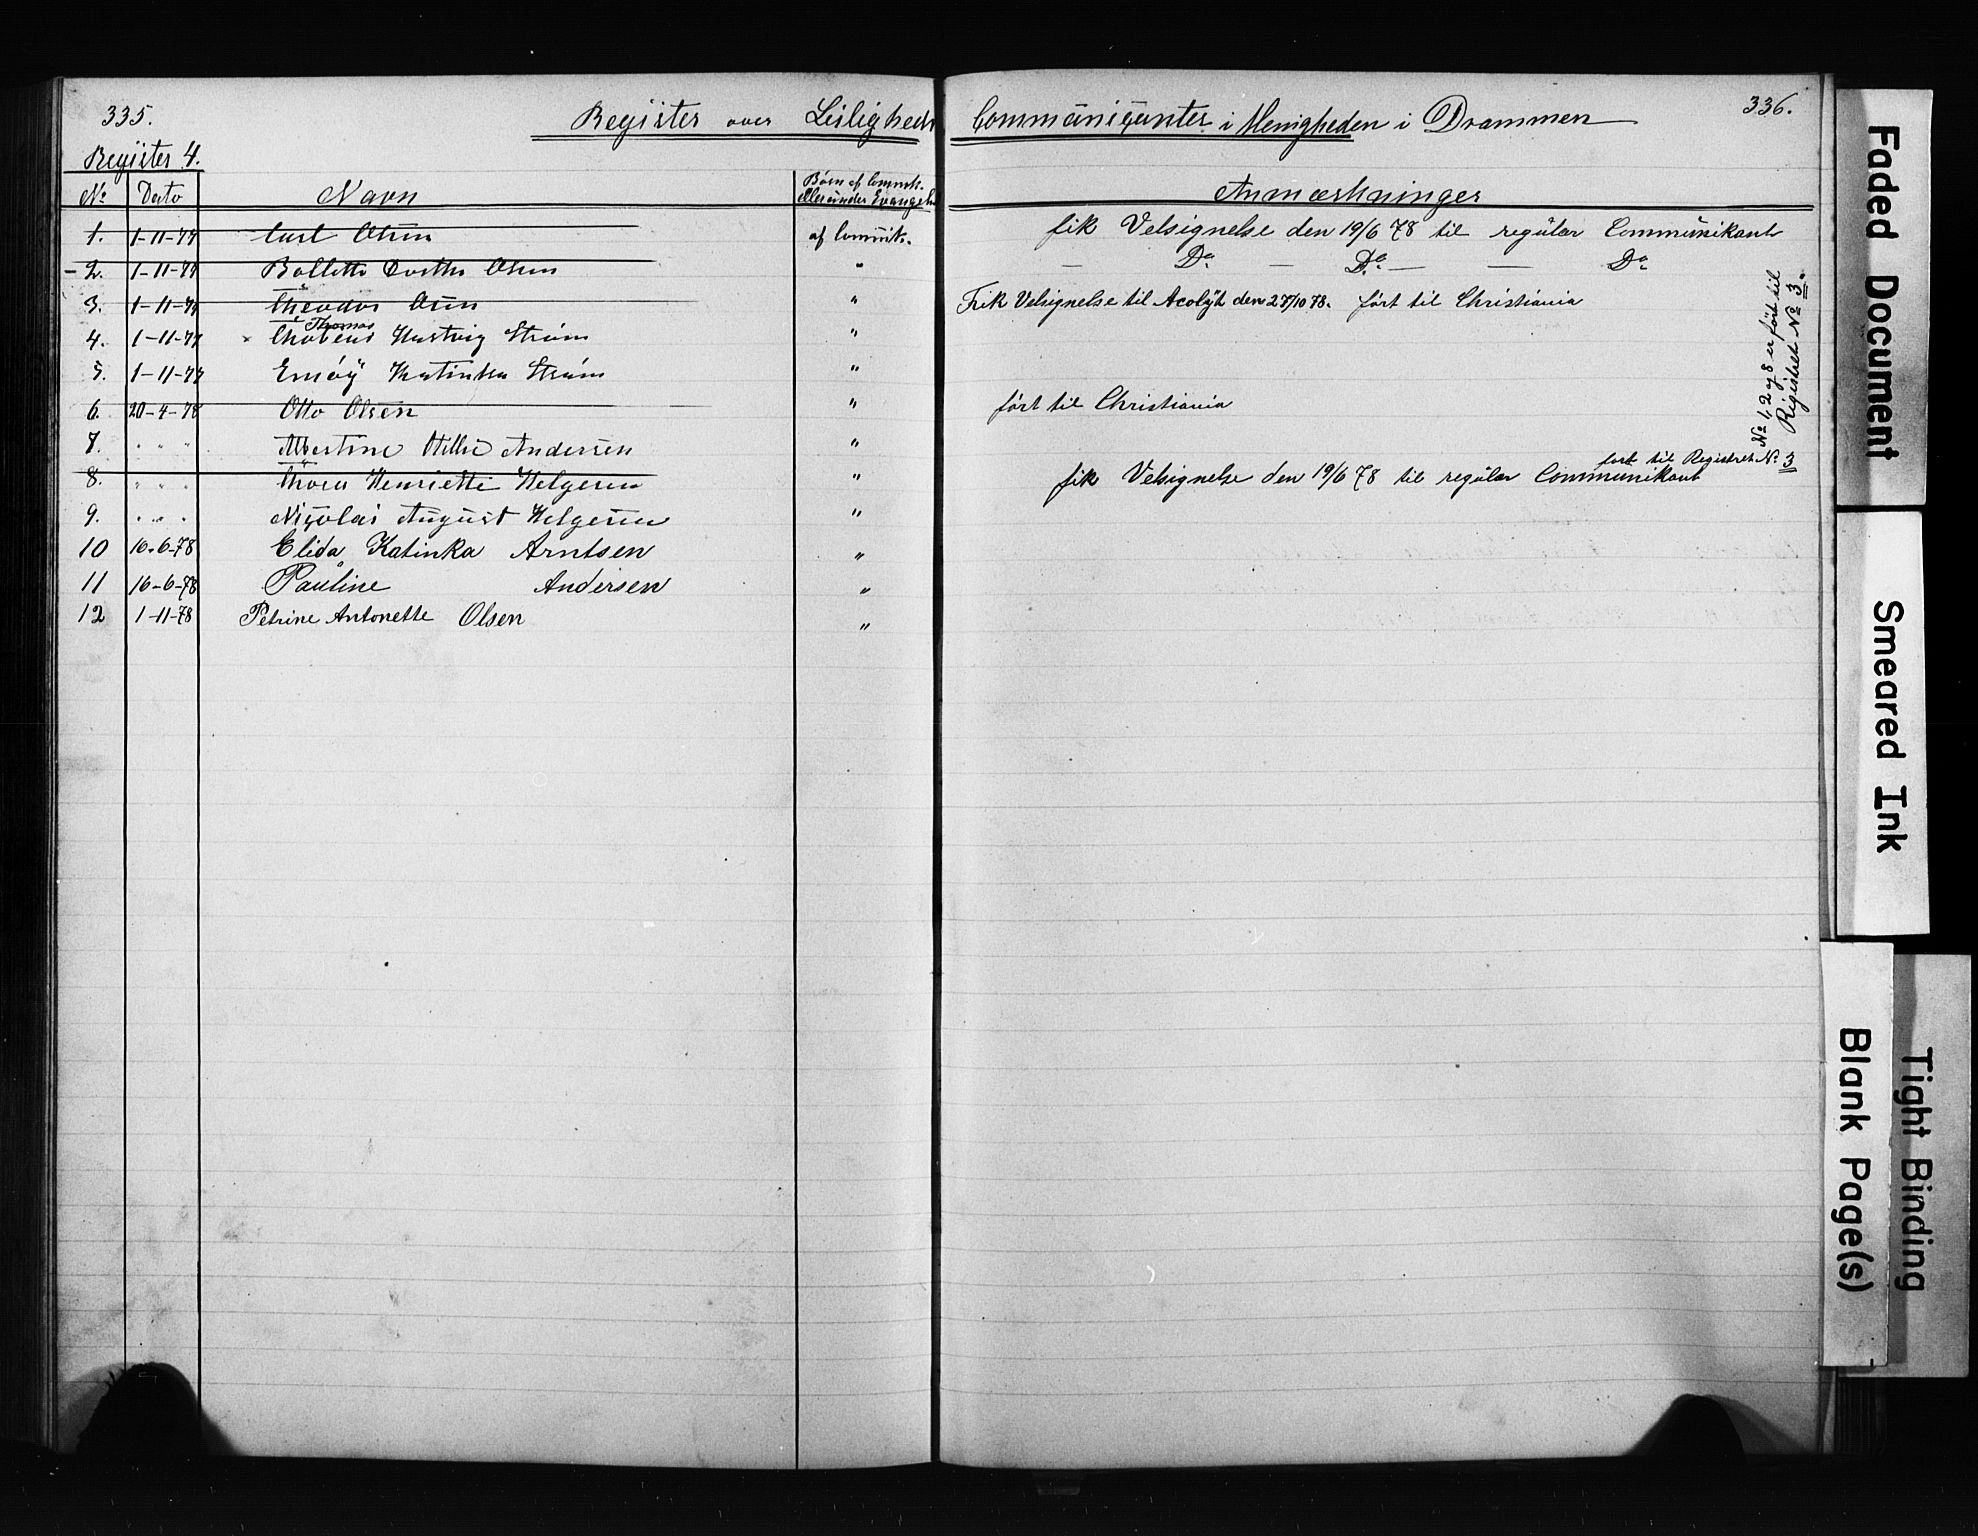 335.
Register over Leiligheds Communicanter i Menigheden i Drammen
336.
Register 4.
No Dato Navn Børn af Commk. eller under Evangel. Anmærkninger
1. 1-11-77 Carl Olsen af Commk. fik Velsignelse den 19/6 78 til regulær Communikant
2. 1-11-77 Bollette Dorthe Olsen " — Do — Do — — Do
3. 1-11-77 Theodor Olsen " Fik Velsignelse til Acolyt den 27/10 78. ført til Christiania
Thomas
4. 1-11-77 Hartvig Strøm "
5. 1-11-77 Emöy Katinka Strøm "
6. 20-4-78 Otto Olsen " ført til Christiania
7. " " " Albertine Andersen "
8. " " " Thora Henriette Helgesen " fik Velsignelse den 19/6 78 til regulær Communikant
ført til Registret No 3
9. " " " Nicolai August Helgesen "
10 16-6-78 Elida Katinka Arntsen "
11 16-6-78 Pauline Andersen "
12 1-11-78 Petrine Antonette Olsen "
No 1, 2 og 8 er ført til
Registret No 3.
Faded Document
Smeared Ink
Tight Binding
Blank Page(s)